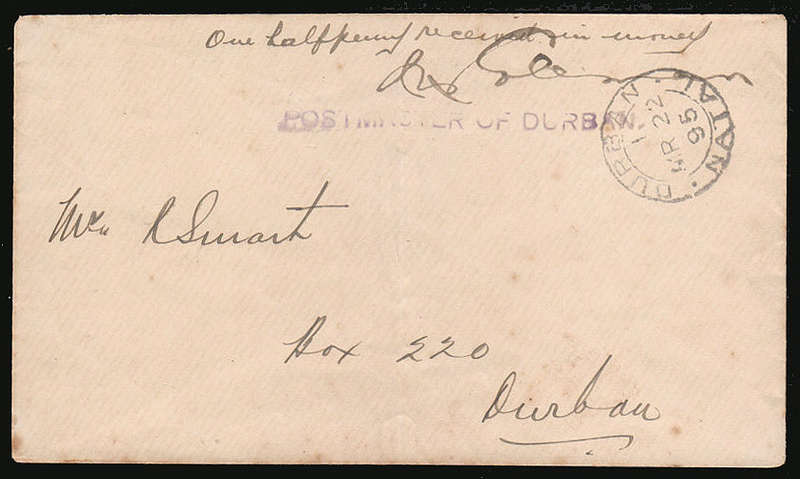 One halfpenny received in money
POSTMASTER OF DURBAN.
DURBAN · NATAL ·
1
MR 22
95
Mr R Smart
Box 220
Durban